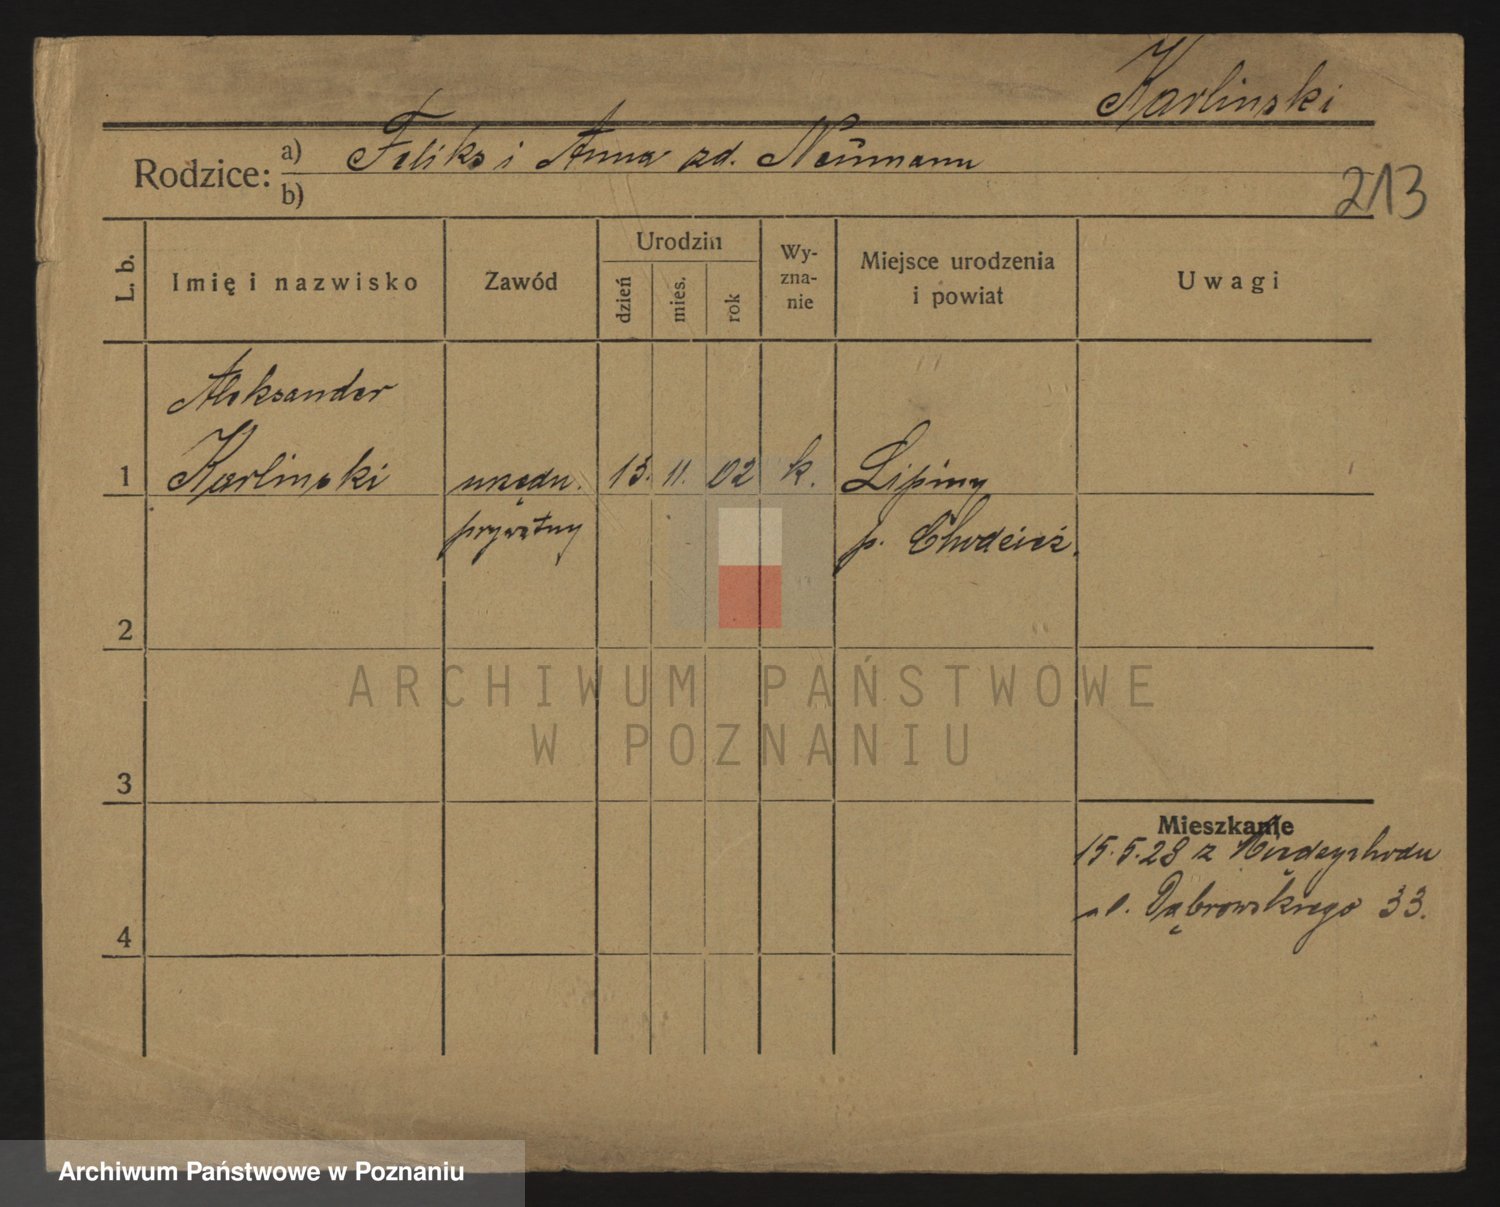 Karlinski
Rodzice: a) Feliks i Anna zd. Neūmann
b)
213
L. b.
Imię i nazwisko
Zawód
Urodzin
dzień
mies.
rok
Wy-
zna-
nie
Miejsce urodzenia
i powiat
Uwagi
Aleksander
1 Karlinski urzędn. 13. 11. 02 k. Lipiny
prywatny p. Chodzież.
2
ARCHIWUM PAŃSTWOWE
W POZNANIU
3
Mieszkanie
15.5.28 z Międzychodu
ul. Dąbrowskiego 33.
4
Archiwum Państwowe w Poznaniu